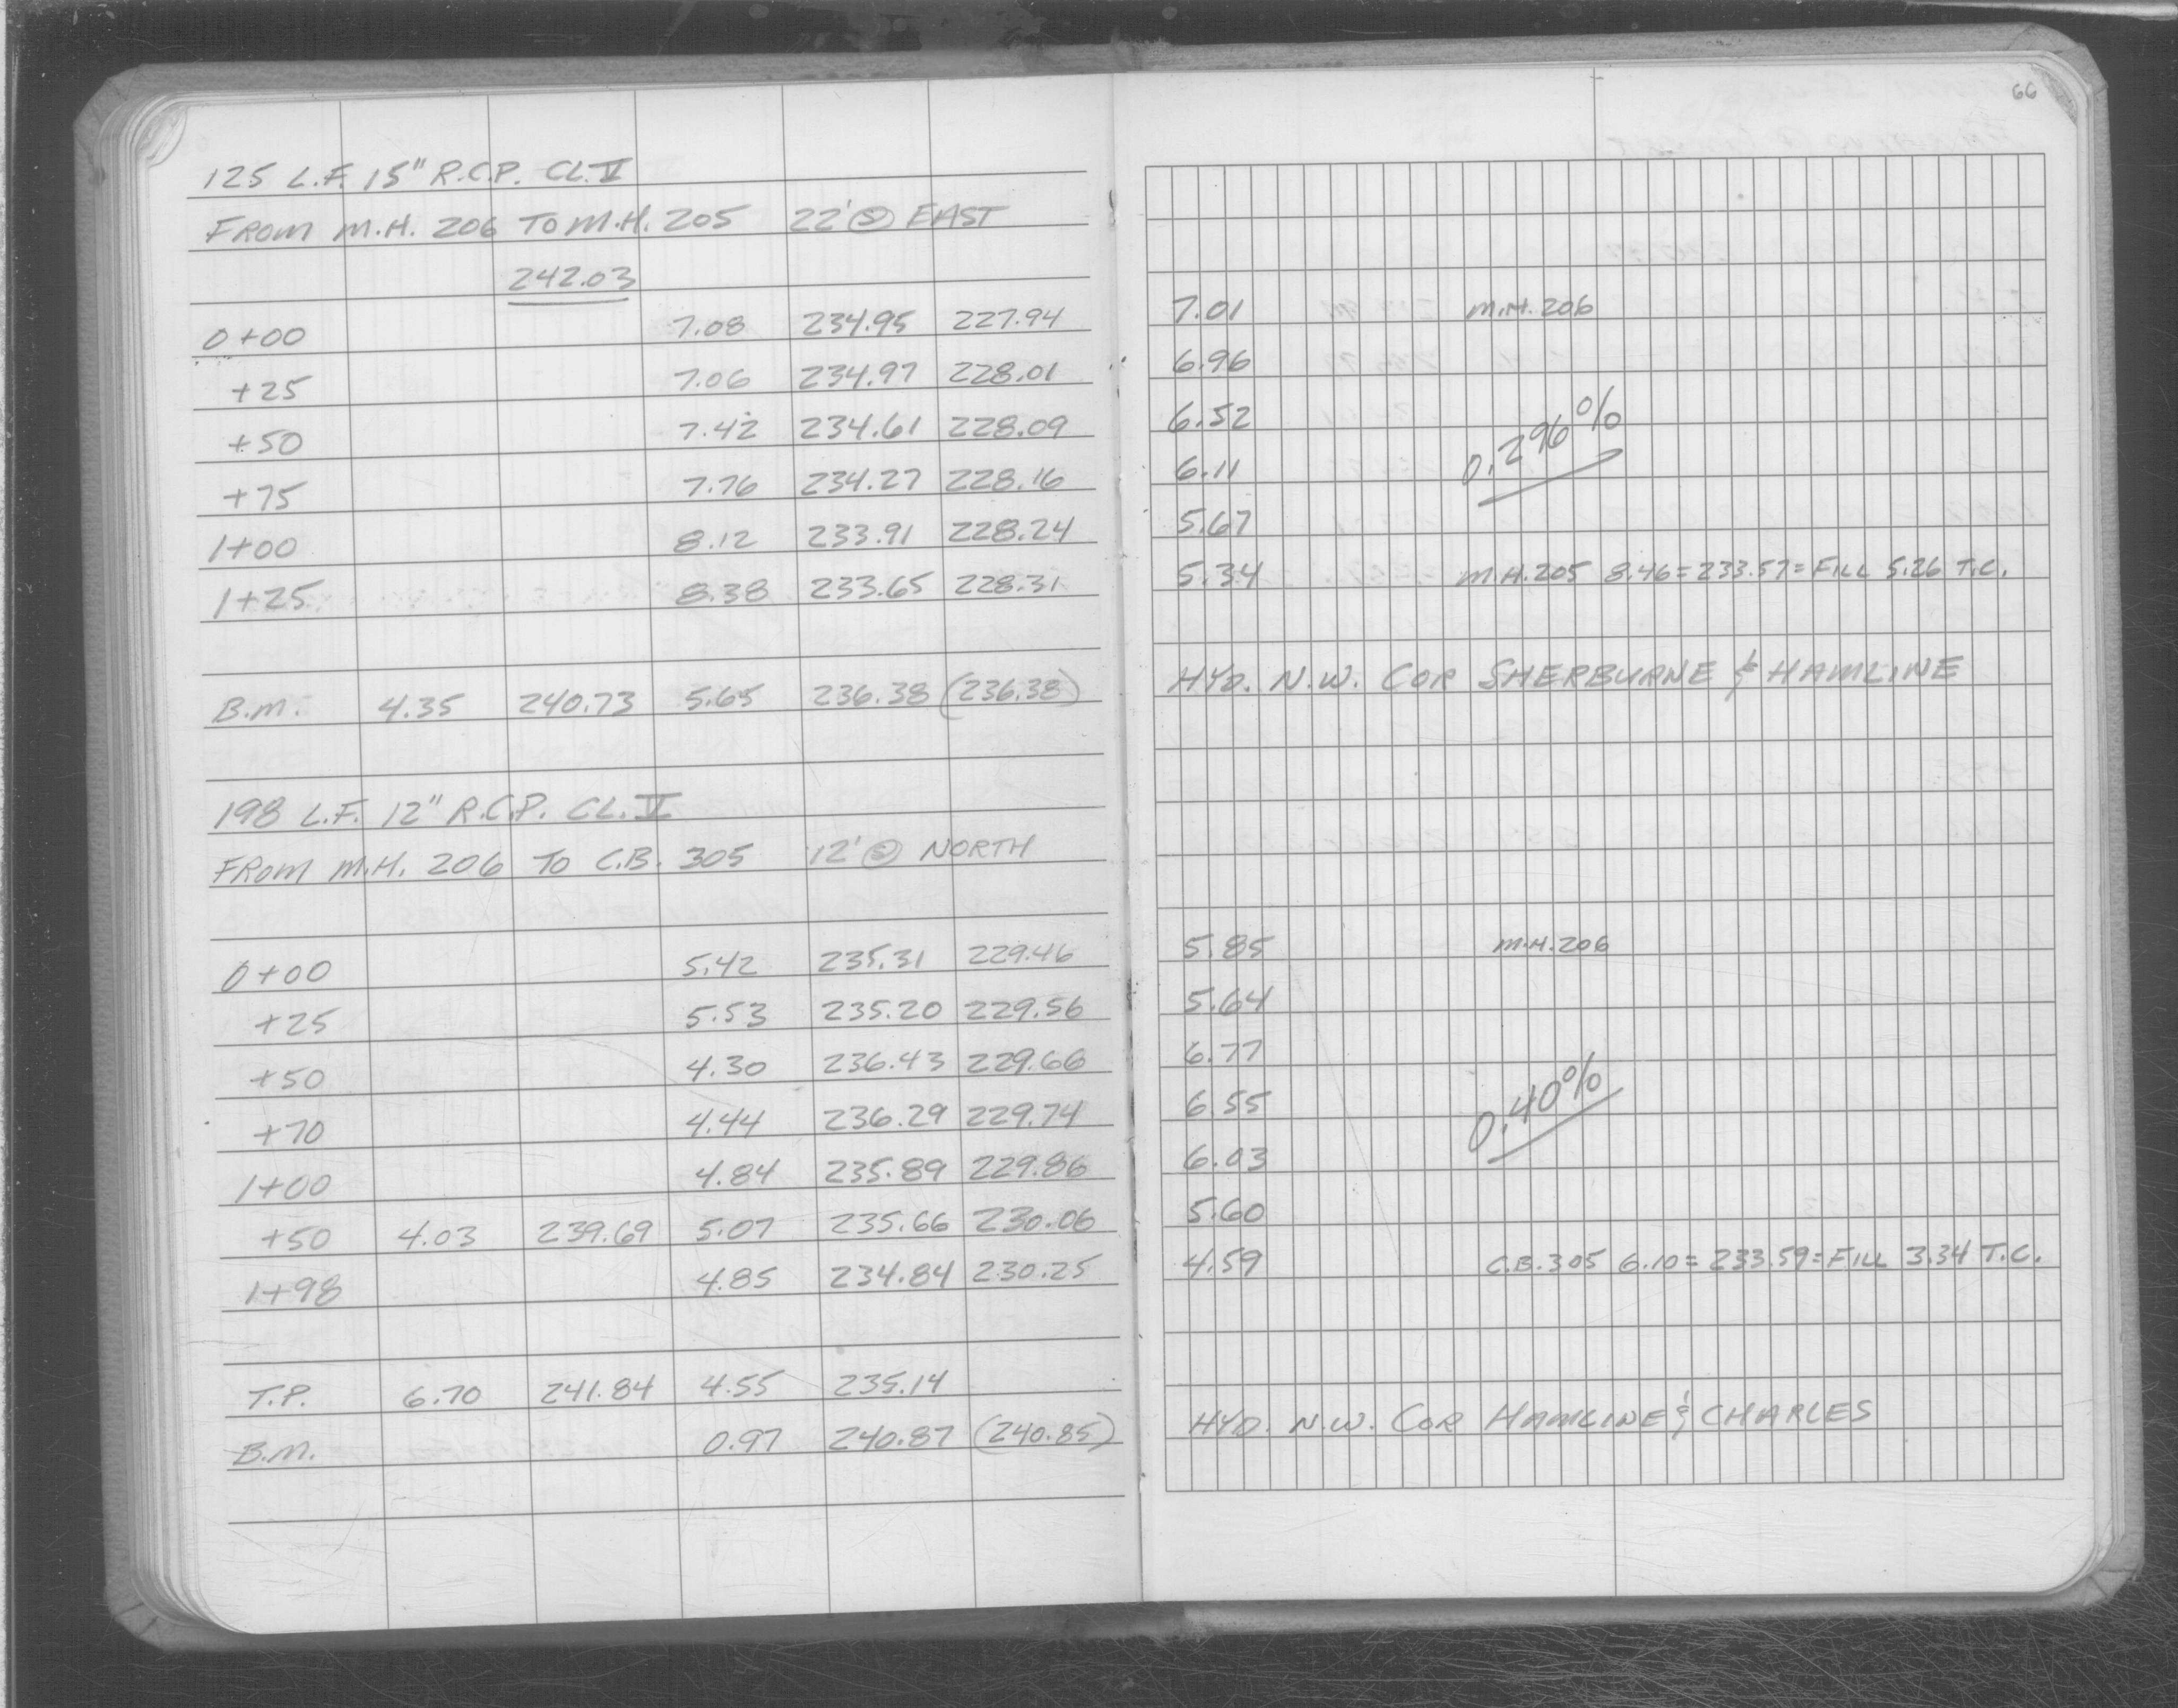 66
125 L.F. 15" R.C.P. CL. V
FROM M.H. 206 TO M.H. 205 22' @ EAST
242.03
0+00 7.08 234.95 227.94 7.01 M.H. 206
+25 7.06 234.97 228.01 6.96
+50 7.42 234.61 228.09 6.52
0.296%
+75 7.76 234.27 228.16 6.11
1+00 8.12 233.91 228.24 5.67
1+25 8.38 233.65 228.31 5.34 M.H. 205 8.46=233.57=FILL 5.26 T.C.
B.M. 4.35 240.73 5.65 236.38 (236.38) HYD. N.W. COR SHERBURNE & HAMLINE
198 L.F. 12" R.C.P. CL. V
FROM M.H. 206 TO C.B. 305 12' @ NORTH
0+00 5.42 235.31 229.46 5.85 M.H. 206
+25 5.53 235.20 229.56 5.64
+50 4.30 236.43 229.66 6.77
+70 4.44 236.29 229.74 6.55
0.40%
1+00 4.84 235.89 229.86 6.03
+50 4.03 239.69 5.07 235.66 230.06 5.60
1+98 4.85 234.84 230.25 4.59 C.B. 305 6.10=233.59=FILL 3.34 T.C.
T.P. 6.70 241.84 4.55 235.14
B.M. 0.97 240.87 (240.85) HYD. N.W. COR HAMLINE & CHARLES